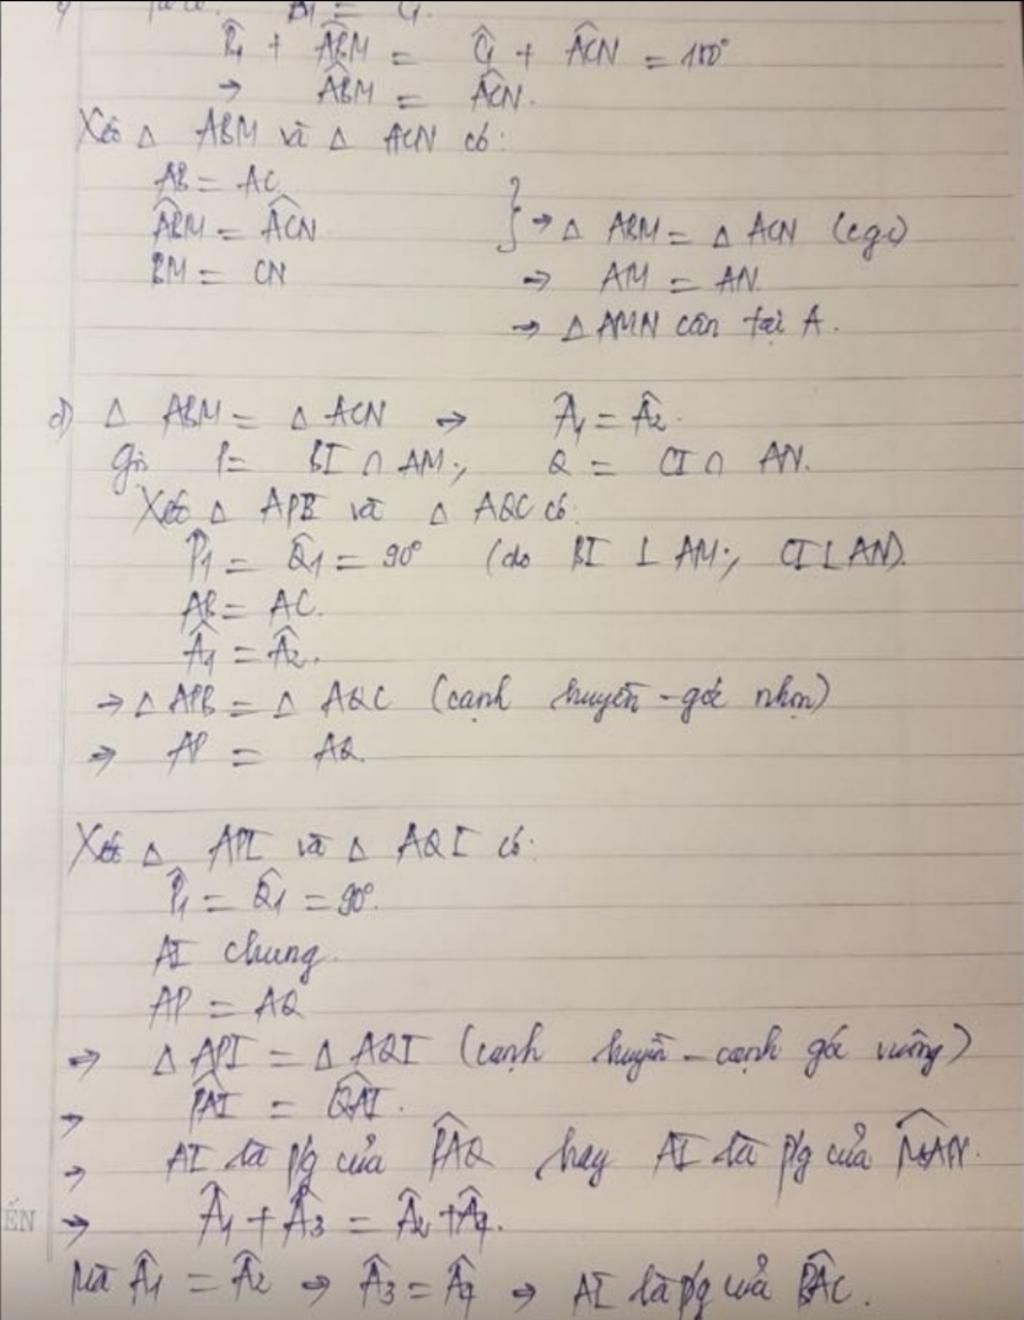 B̂₁ = Ĉ₁.
B̂₁ + ABM̂ = Ĉ₁ + ACN̂ = 180°
→ ABM̂ = ACN̂.
Xét Δ ABM và Δ ACN có:
AB = AC
ABM̂ = ACN̂
BM = CN
} → Δ ABM = Δ ACN (cgc)
→ AM = AN.
→ Δ AMN cân tại A.
d) Δ ABM = Δ ACN → Â₁ = Â₂.
Gọi P = BI ∩ AM; Q = CI ∩ AN.
Xét Δ APB và Δ AQC có:
P̂₁ = Q̂₁ = 90° (do BI ⊥ AM; CI ⊥ AN).
AB = AC.
Â₁ = Â₂.
→ Δ APB = Δ AQC (cạnh huyền - góc nhọn)
→ AP = AQ.
Xét Δ API và Δ AQI có:
P̂₁ = Q̂₁ = 90°.
AI chung.
AP = AQ
→ Δ API = Δ AQI (cạnh huyền - cạnh góc vuông)
→ PAÎ = QAÎ.
→ AI là p/g của PAQ̂ hay AI là p/g của MAN̂.
ẾN → Â₁ + Â₃ = Â₂ + Â₄.
Mà Â₁ = Â₂ → Â₃ = Â₄ → AI là p/g của BAĈ.